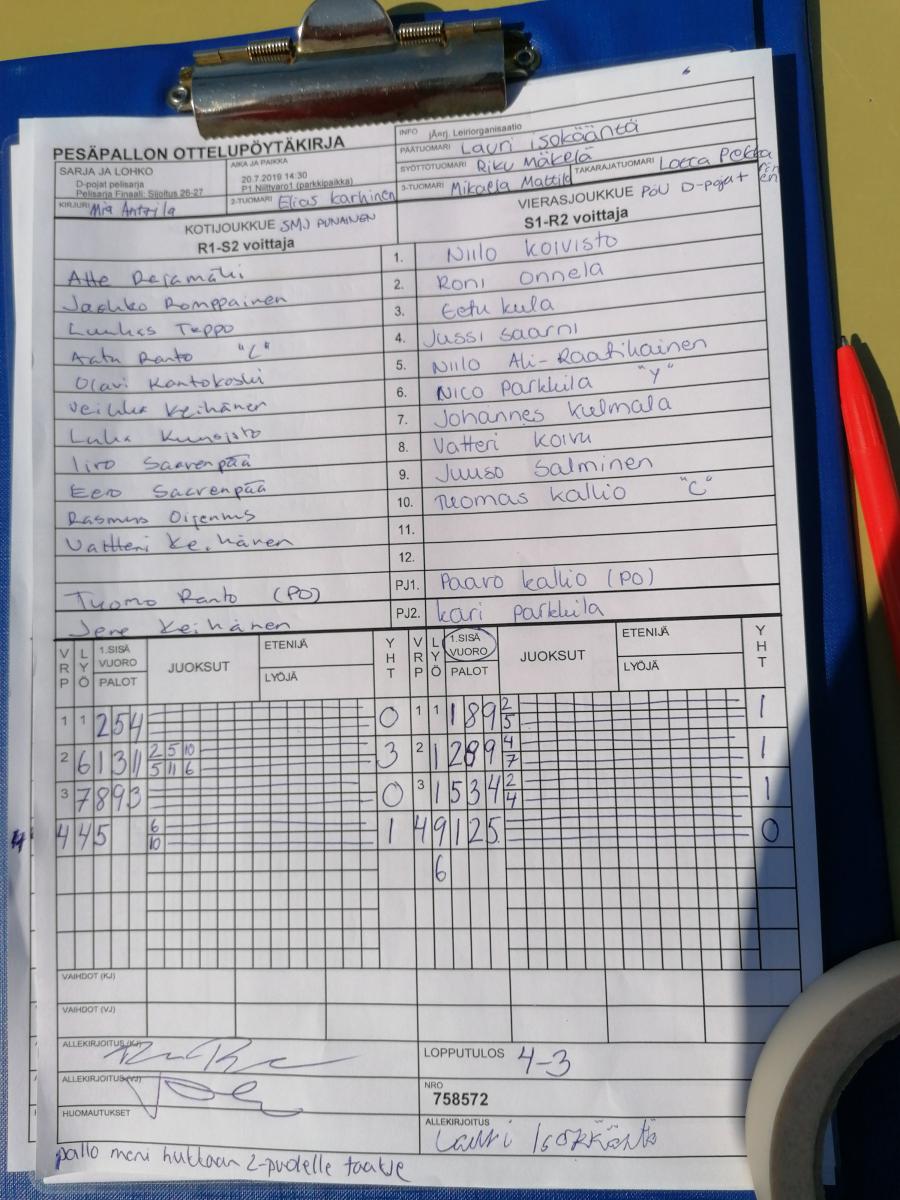 PESÄPALLON OTTELUPÖYTÄKIRJA
INFO jÄrrj. Leiriorganisaatio
PÄÄTUOMARI Lauri isokääntä
SYÖTTÖTUOMARI Riku Mäkelä TAKARAJATUOMARI Lotta Pekka
3-TUOMARI Mikaela Mattila
SARJA JA LOHKO
D-pojat pelisarja
Pelisarja Finaali: Sijoitus 26-27
AIKA JA PAIKKA
20.7.2019 14:30
P1 Niittyaro1 (parkkipaikka)
KIRJURI Mia Anttila 2-TUOMARI Elias Karhinen
KOTIJOUKKUE SMJ PUNAINEN
R1-S2 voittaja
VIERASJOUKKUE PöU D-pojat
S1-R2 voittaja
Atte Perämäki 1. Niilo Koivisto
Jaakko Romppainen 2. Roni Onnela
Luukas Teppo 3. Eetu kula
Aatu Ranto "C" 4. Jussi saarni
Olavi Kantokoski 5. Niilo Ali-Raatikainen
Veikka Keihänen 6. Nico Parkkila "Y"
Luka Kuusisto 7. Johannes Kulmala
Iiro Saarenpää 8. Valtteri Koivu
Eero Saarenpää 9. Juuso Salminen
Rasmus 10. Tuomas kallio "C"
Valtteri Keihänen 11.
12.
Tuomo Ranto (PO) PJ1. Paavo kallio (PO)
Jene Keihänen PJ2. kari parkkila
VRP LYÖ 1.SISÄ VUORO PALOT JUOKSUT ETENIJÄ LYÖJÄ YHT VRP LYÖ 1.SISÄ VUORO PALOT JUOKSUT ETENIJÄ LYÖJÄ YHT
1 1 2 5 4 0 1 1 1 8 9 2/5 1
2 6 1 3 11 2/5 5/11 10/6 3 2 1 2 8 9 4/7 1
3 7 8 9 3 0 3 1 5 3 4 2/4 1
4 4 5 6/10 1 4 9 1 2 5 0
6
VAIHDOT (KJ)
VAIHDOT (VJ)
ALLEKIRJOITUS (KJ)
LOPPUTULOS 4-3
ALLEKIRJOITUS (VJ)
NRO
758572
HUOMAUTUKSET
ALLEKIRJOITUS
Lauri Isokääntä
pallo meni hukkaan 2-puolelle taakse